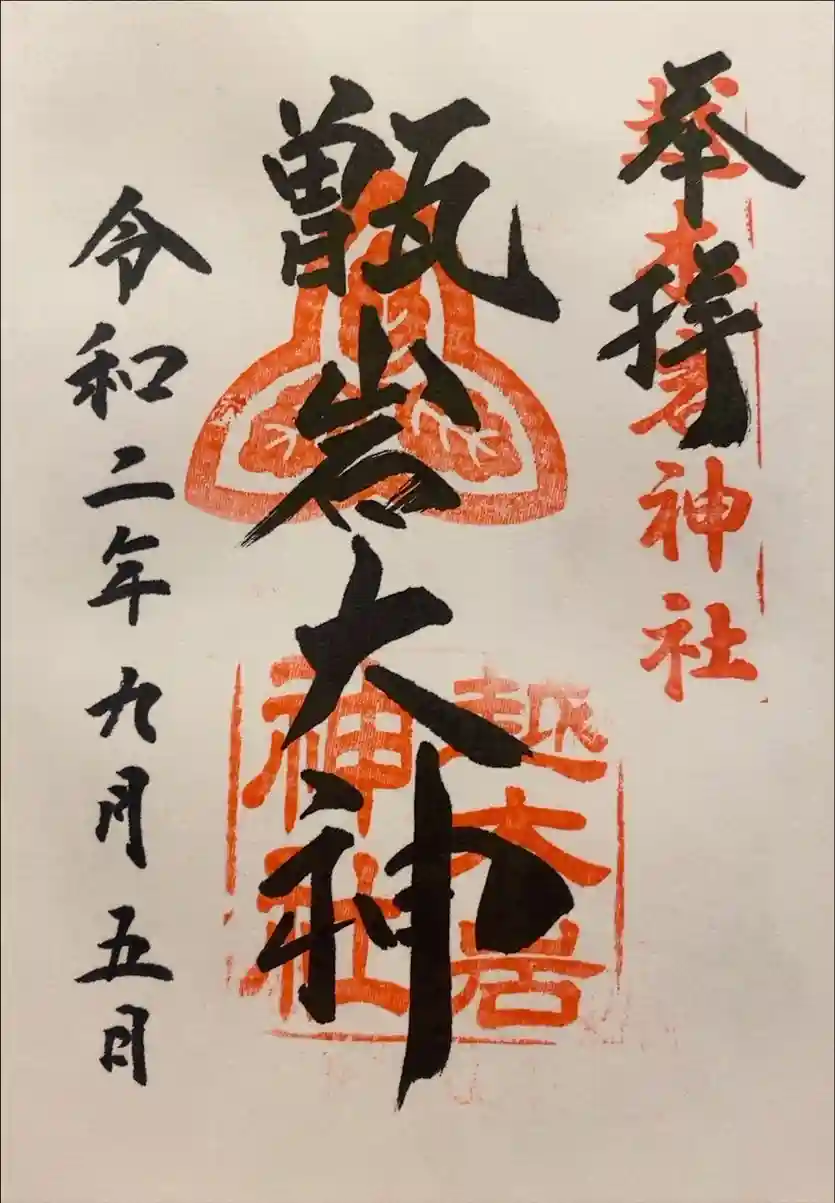 奉拝
越木岩神社
甑岩大神
越木岩神社
令和二年九月五日